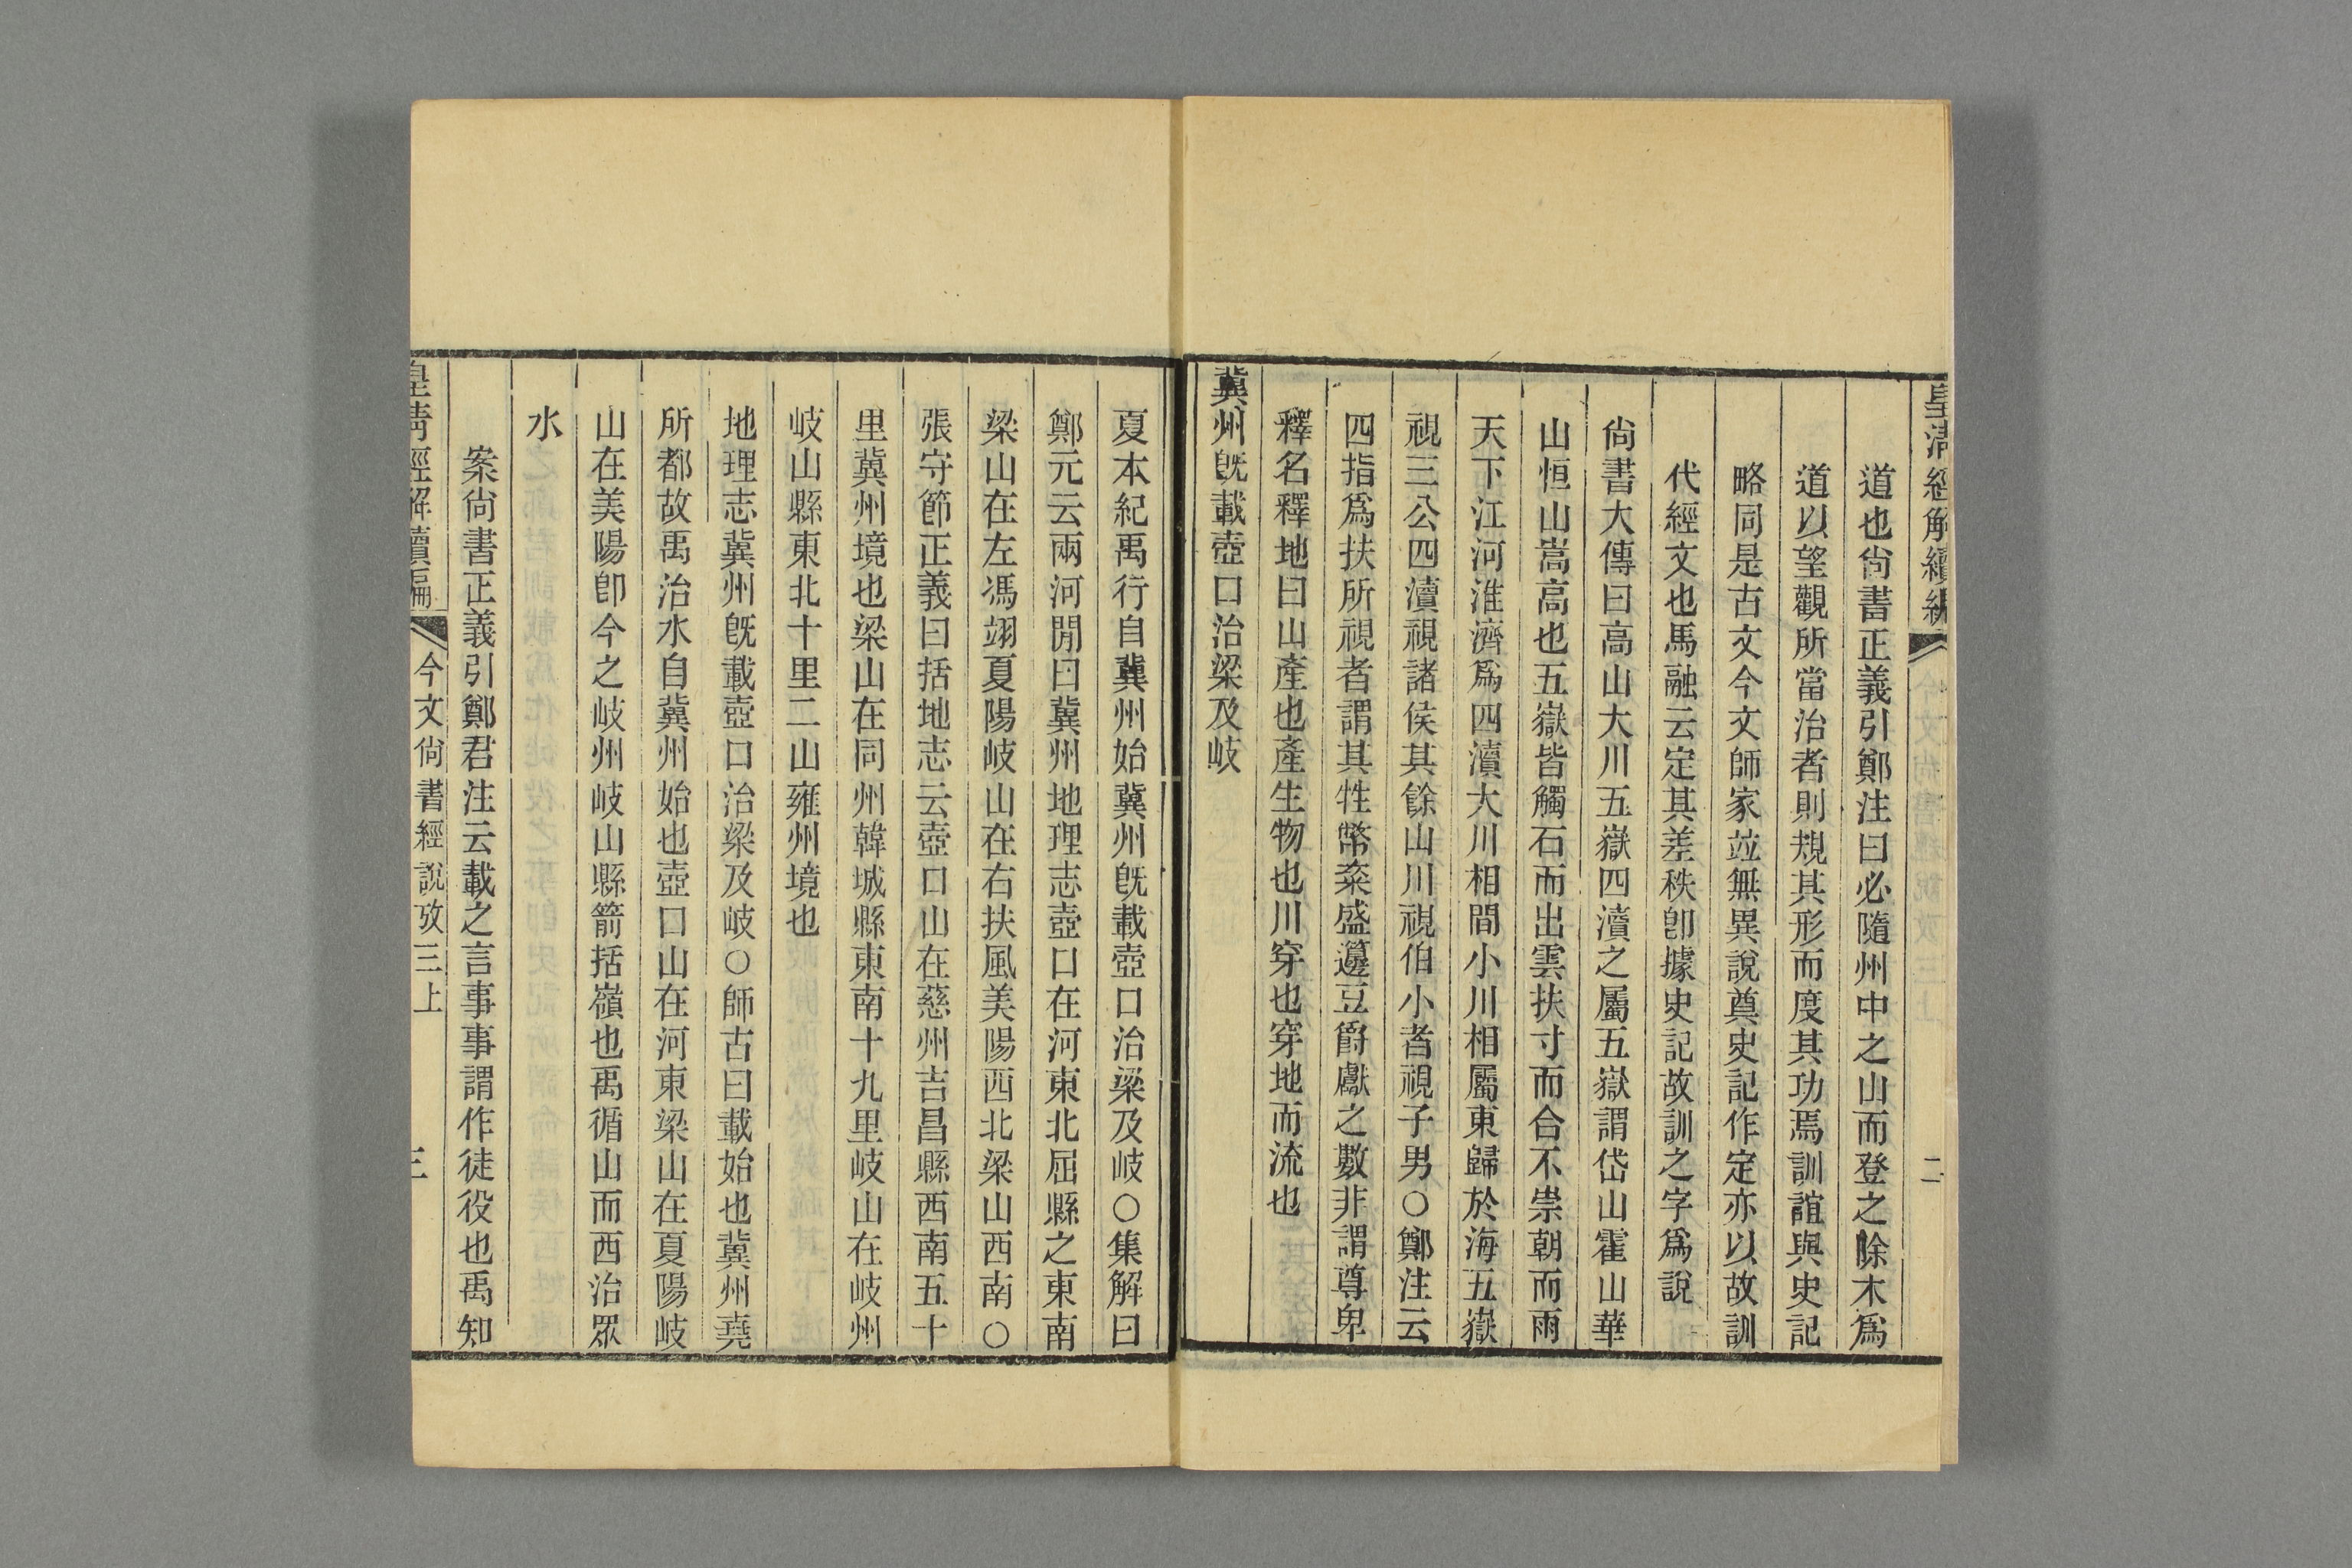 皇清經解續編
二
道也尙書正義引鄭注曰必隨州中之山而登之除木爲
道以望觀所當治者則規其形而度其功焉訓誼與史記
略同是古文今文師家竝無異說奠史記作定亦以故訓
代經文也馬融云定其差秩卽據史記故訓之字爲說
尙書大傳曰高山大川五嶽四瀆之屬五嶽謂岱山霍山華
山恒山嵩高也五嶽皆觸石而出雲扶寸而合不崇朝而雨
天下江河淮濟爲四瀆大川相間小川相屬東歸於海五嶽
視三公四瀆視諸侯其餘山川視伯小者視子男○鄭注云
四指爲扶所視者謂其牲幣粢盛籩豆爵獻之數非謂尊卑
釋名釋地曰山產也產生物也川穿也穿地而流也
冀州旣載壺口治梁及岐
夏本紀禹行自冀州始冀州旣載壺口治梁及岐○集解曰
鄭元云兩河閒曰冀州地理志壺口在河東北屈縣之東南
梁山在左馮翊夏陽岐山在右扶風美陽西北梁山西南○
張守節正義曰括地志云壺口山在慈州吉昌縣西南五十
里冀州境也梁山在同州韓城縣東南十九里岐山在岐州
岐山縣東北十里二山雍州境也
地理志冀州旣載壺口治梁及岐○師古曰載始也冀州堯
所都故禹治水自冀州始也壺口山在河東梁山在夏陽岐
山在美陽卽今之岐州岐山縣箭括嶺也禹循山而西治眾
水
案尙書正義引鄭君注云載之言事事謂作徒役也禹知
皇清經解續編
今文尙書經說攷三上
三